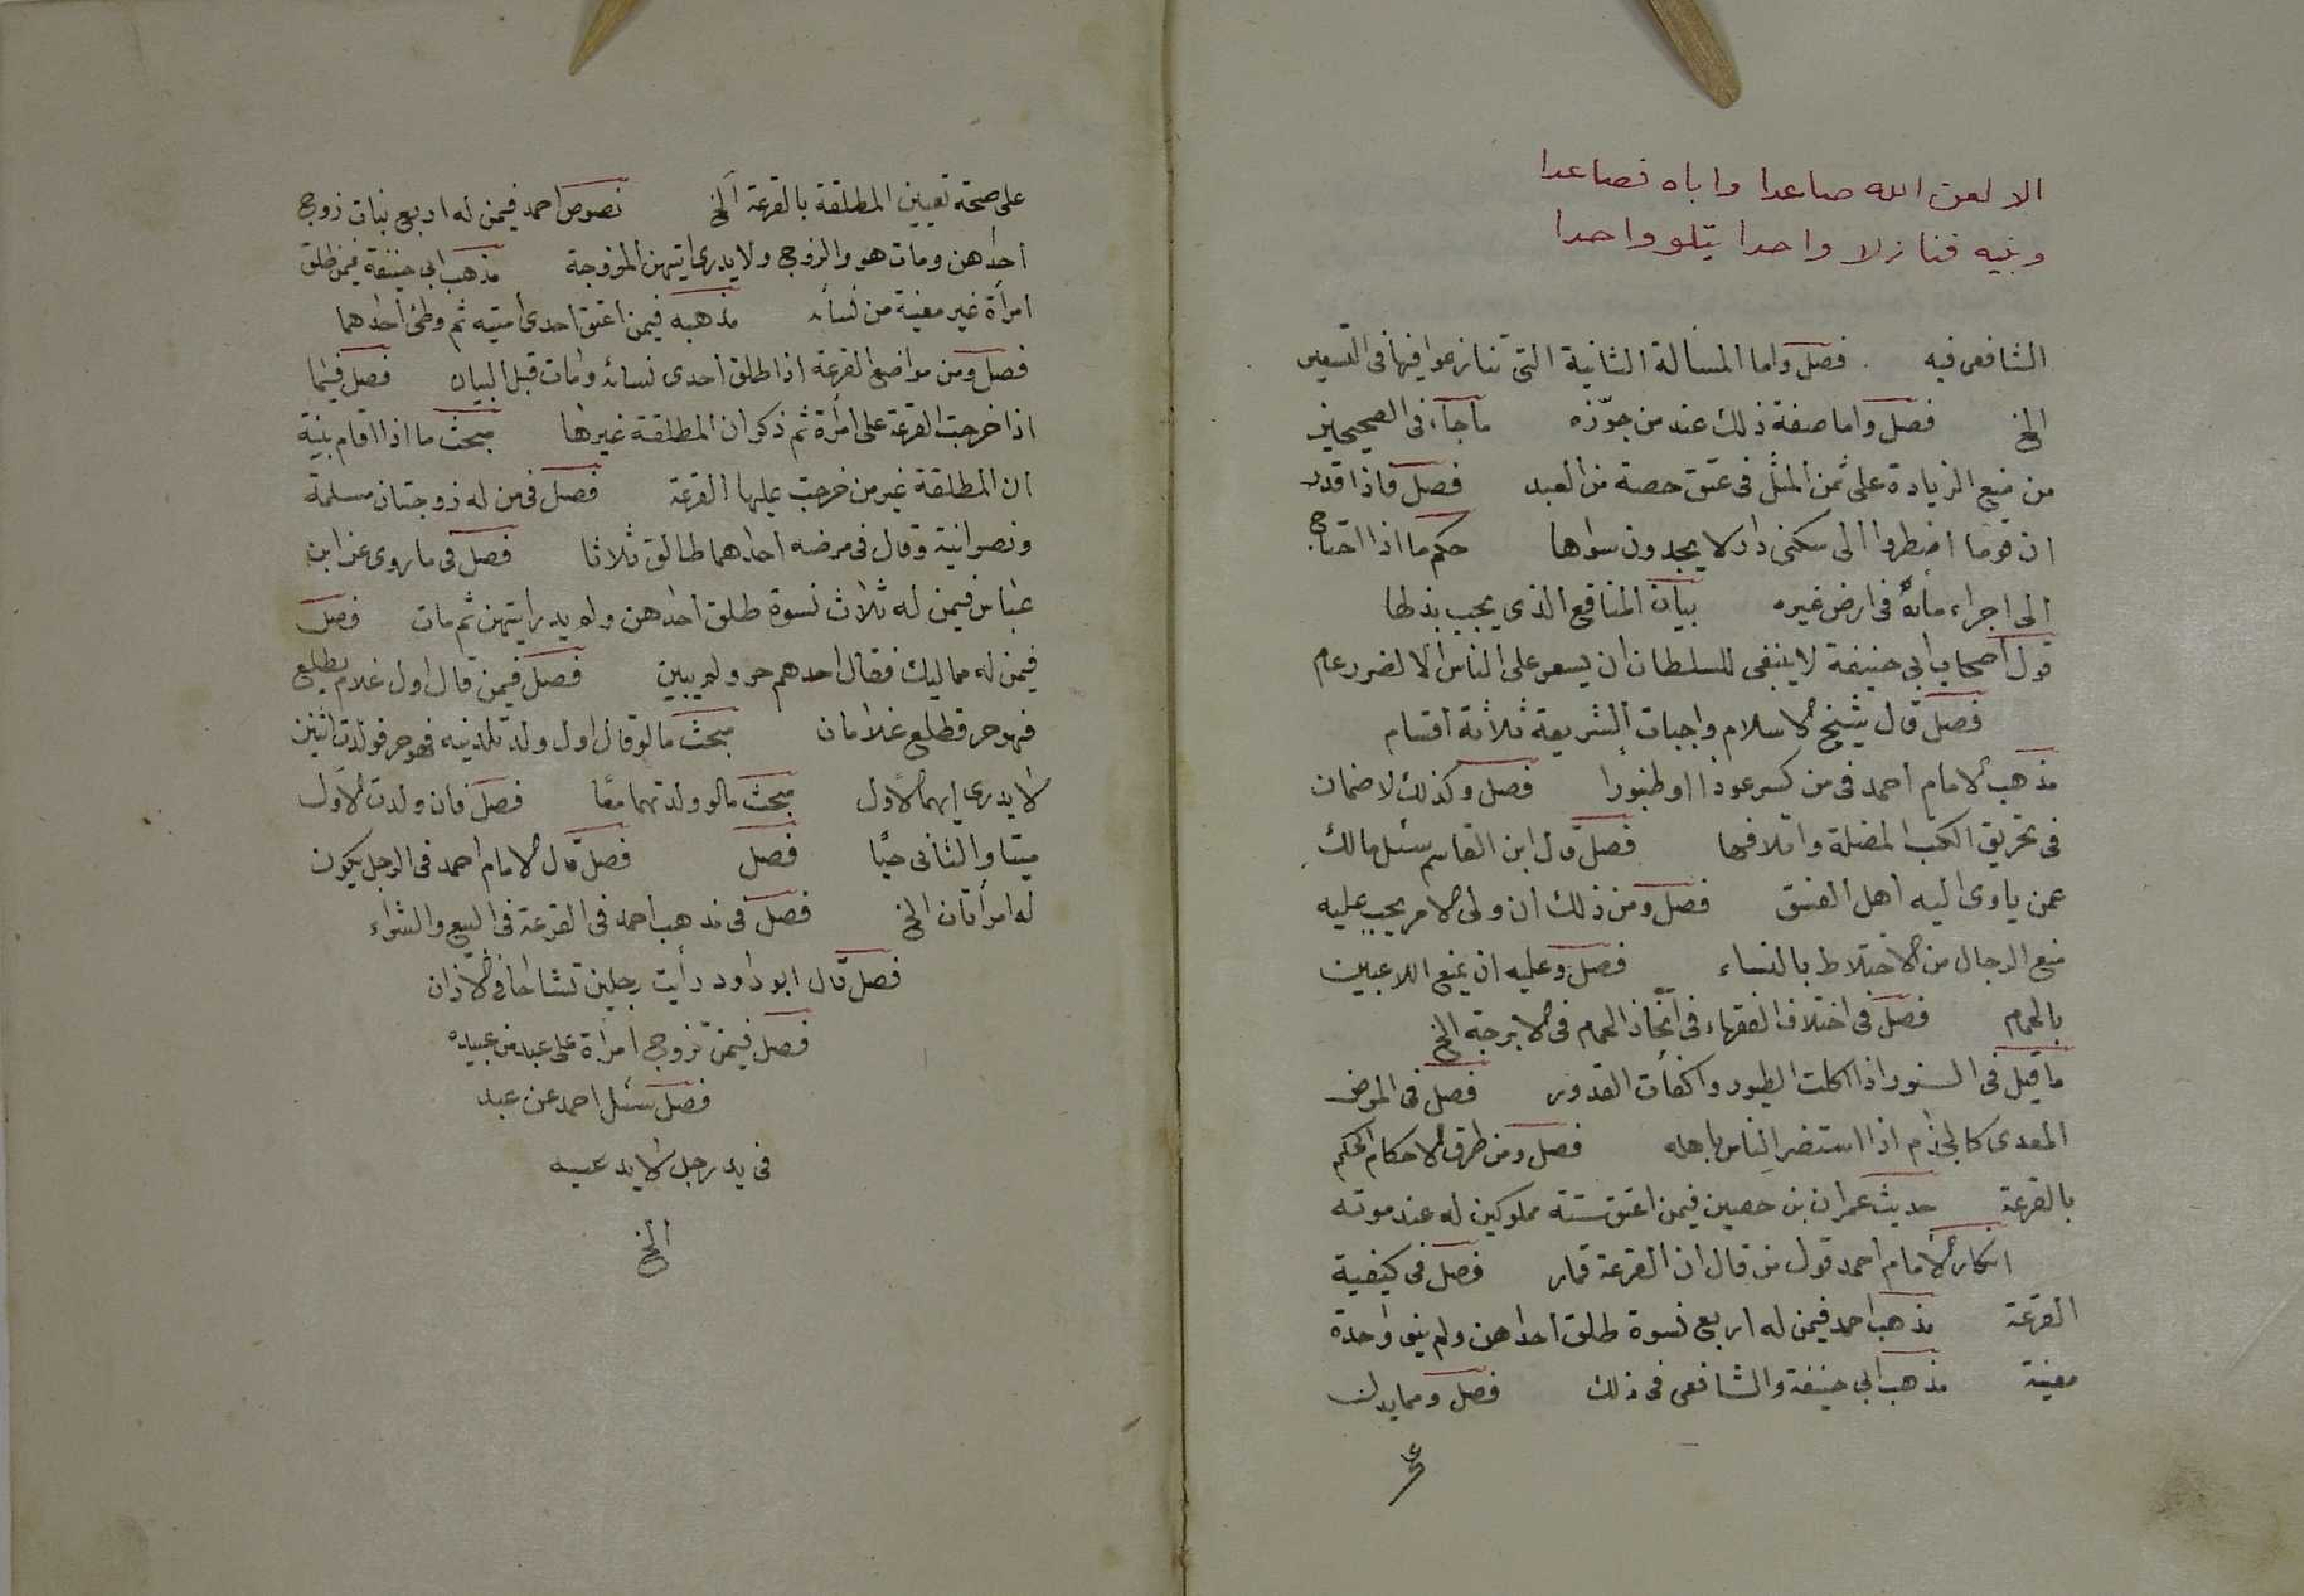 الا لعن الله صاعدا واباه فصاعدا
وبنيه فنازلا واحدا يتلو واحدا
الشافعى فيه فصل واما المسألة الثانية التى تنازعوا فيها فى التسعير
الخ فصل واما صفة ذلك عند من جوّزه ما جاء فى الصحيحين
من منع الزيادة على ثمن المثل فى عتق حصة من العبد فصل فاذا قدر
ان قوما اضطروا الى سكنى دار لا يجدون سواها حكم ما اذا احتاج
الى اجراء مائه فى ارض غيره بيان المنافع الذى يجب بذلها
قول اصحاب ابى حنيفة لا ينبغى للسلطان ان يسعر على الناس الا لضرر عام
فصل قال شيخ الاسلام واجبات الشريعة ثلاثة اقسام
مذهب الامام احمد فى من كسر عودا او طنبورا فصل وكذلك لا ضمان
فى تحريق الكتب المضلة واتلافها فصل قال ابن القاسم سئل مالك
عمن ياوى اليه اهل الفسق فصل ومن ذلك ان ولى الامر يجب عليه
منع الرجال من الاختلاط بالنساء فصل وعليه ان يمنع اللاعبين
بالحمام فصل فى اختلاف الفقهاء فى اتخاذ الحمام فى الابرجة الخ
ما قيل فى السنور اذا اكلت الطيور واكفأت القدور فصل فى المرض
المعدى كالجذام اذا استضر الناس باهله فصل ومن طرق الاحكام الحكم
بالقرعة حديث عمران بن حصين فيمن اعتق ستة مملوكين له عند موته
انكار الامام احمد قول من قال ان القرعة قمار فصل فى كيفية
القرعة مذهب احمد فيمن له اربع نسوة طلق احداهن ولم ينو واحدة
معينة مذهب ابى حنيفة والشافعى فى ذلك فصل ومما يدل
على صحة تعيين المطلقة بالقرعة الخ نصوص احمد فيمن له اربع بنات زوج
احداهن ومات هو والزوج ولا يدرى ايتهن المزوجة مذهب ابى حنيفة فيمن طلق
امرأة غير معينة من نسائه مذهبه فيمن اعتق احدى امتيه ثم وطئ احداهما
فصل ومن مواضع القرعة اذا طلق احدى نسائه ومات قبل البيان فصل فيما
اذا خرجت القرعة على امرأة ثم ذكر ان المطلقة غيرها مبحث ما اذا اقام بينة
ان المطلقة غير من خرجت عليها القرعة فصل فى من له زوجتان مسلمة
ونصرانية وقال فى مرضه احداهما طالق ثلاثا فصل فى ما روى عن ابن
عباس فيمن له ثلاث نسوة طلق احداهن ولم يدر ايتهن ثم مات فصل
فيمن له مماليك فقال احدهم حر ولم يبين فصل فيمن قال اول غلام يطلع
فهو حر فطلع غلامان مبحث ما لو قال اول ولد تلدنيه فهو حر فولدت اثنين
لا يدرى ايهما الاول مبحث ما لو ولدتهما معًا فصل فان ولدت الاول
ميتا والثانى حيًا فصل فصل قال الامام احمد فى الرجل يكون
له امرأتان الخ فصل فى مذهب احمد فى القرعة فى البيع والشراء
فصل قال ابو داود رأيت رجلين تشاحا فى الاذان
فصل فيمن تزوج امرأة على عبد من عبيده
فصل سئل احمد عن عبد
فى يد رجل لا يدعيه
الخ